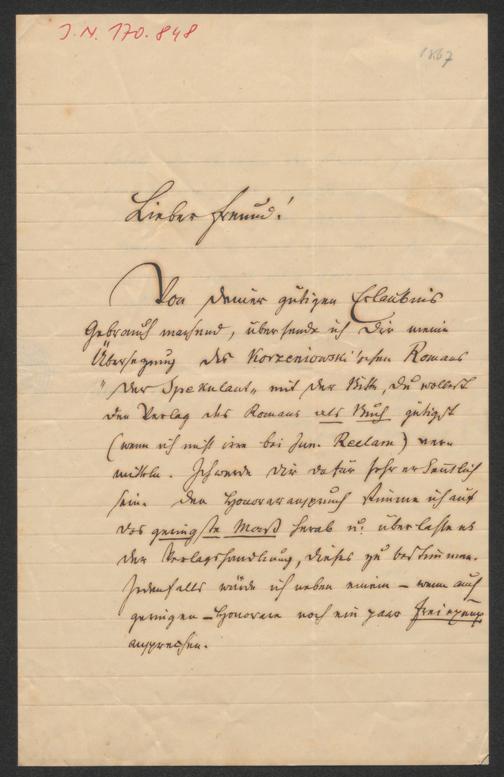 J. N. 170.848
1867
Lieber Freund!
Von Deiner gütigen Erlaubnis
Gebrauch machend, übersende ich Dir meine
Übersetzung des Korzeniowski'schen Romans
"Der Spekulant" mit der Bitte, Du wollest
den Verlag des Romans als Buch gütigst
(wenn ich nicht irre bei Jun. Reclam) ver-
mitteln. Ich werde Dir dafür sehr erkentlich
sein. Den Honoraranspruch stimme ich auf
das geringste Maß herab u. überlasse es
der Verlagshandlung, dieses zu bestimmen.
Jedenfalls würde ich neben einem – wenn auch
geringen – Honorare noch ein paar Freiexempl.
ansprechen.